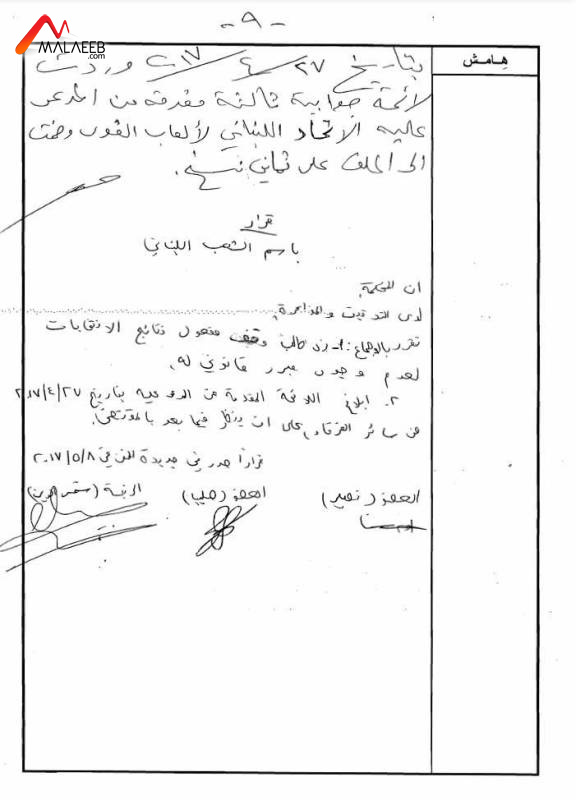 - ٩ -
MALAEEB
.com
هامش
بتاريخ ٢٧/٤/٢٠١٧ وردت
لائحة جوابية ثالثة مقدمة من المدعى
عليه الاتحاد اللبناني لألعاب القوى وضمت
الى الملف على ثماني نسخ.
قرار
باسم الشعب اللبناني
ان المحكمة،
لدى التدقيق والمذاكرة،
تقرر بالاجماع: ١- رد طلب وقف مفعول نتائج الانتخابات
لعدم وجود مبرر قانوني له.
٢. ابلاغ اللائحة المقدمة من المدعيه بتاريخ ٢٠١٧/٤/٢٧
من سائر الفرقاء، على ان ينظر فيما بعد بالمقتضى.
قراراً صدر في جديدة المتن في ٢٠١٧/٥/٨
العضو (نصير) العضو (صليبا) الرئيسة